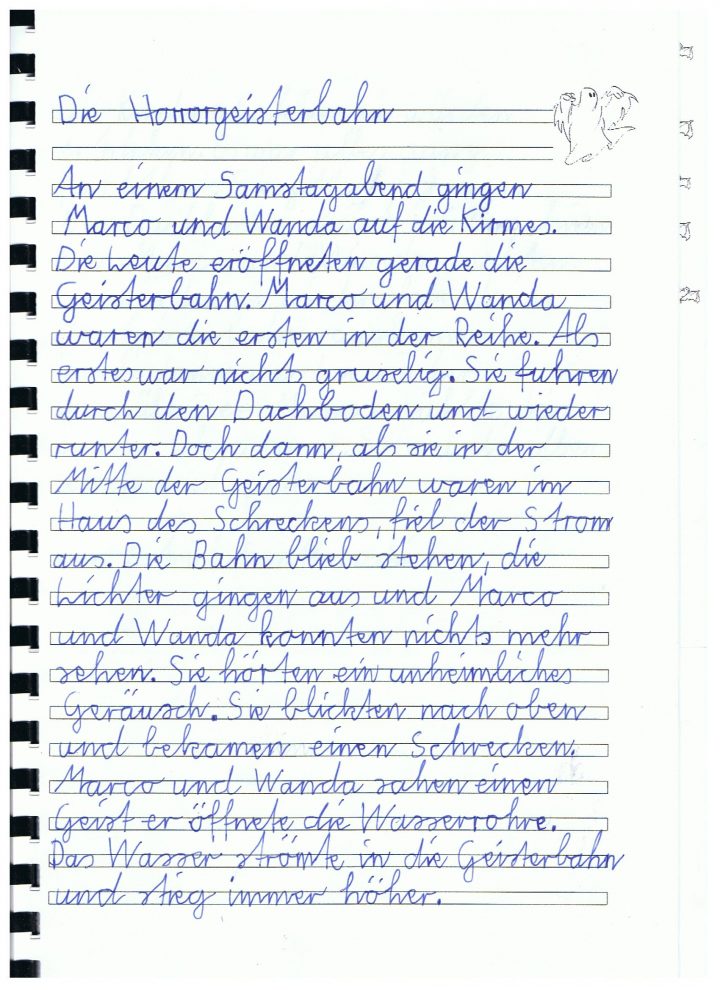 Die Horrorgeisterbahn
An einem Samstagabend gingen
Marco und Wanda auf die Kirmes.
Die Leute eröffneten gerade die
Geisterbahn. Marco und Wanda
waren die ersten in der Reihe. Als
erstes war nichts gruselig. Sie fuhren
durch den Dachboden und wieder
runter. Doch dann, als sie in der
Mitte der Geisterbahn waren im
Haus des Schreckens, fiel der Strom
aus. Die Bahn blieb stehen, die
Lichter gingen aus und Marco
und Wanda konnten nichts mehr
sehen. Sie hörten ein unheimliches
Geräusch. Sie blickten nach oben
und bekamen einen Schrecken.
Marco und Wanda sahen einen
Geist er öffnete die Wasserrohre.
Das Wasser strömte in die Geisterbahn
und stieg immer höher.